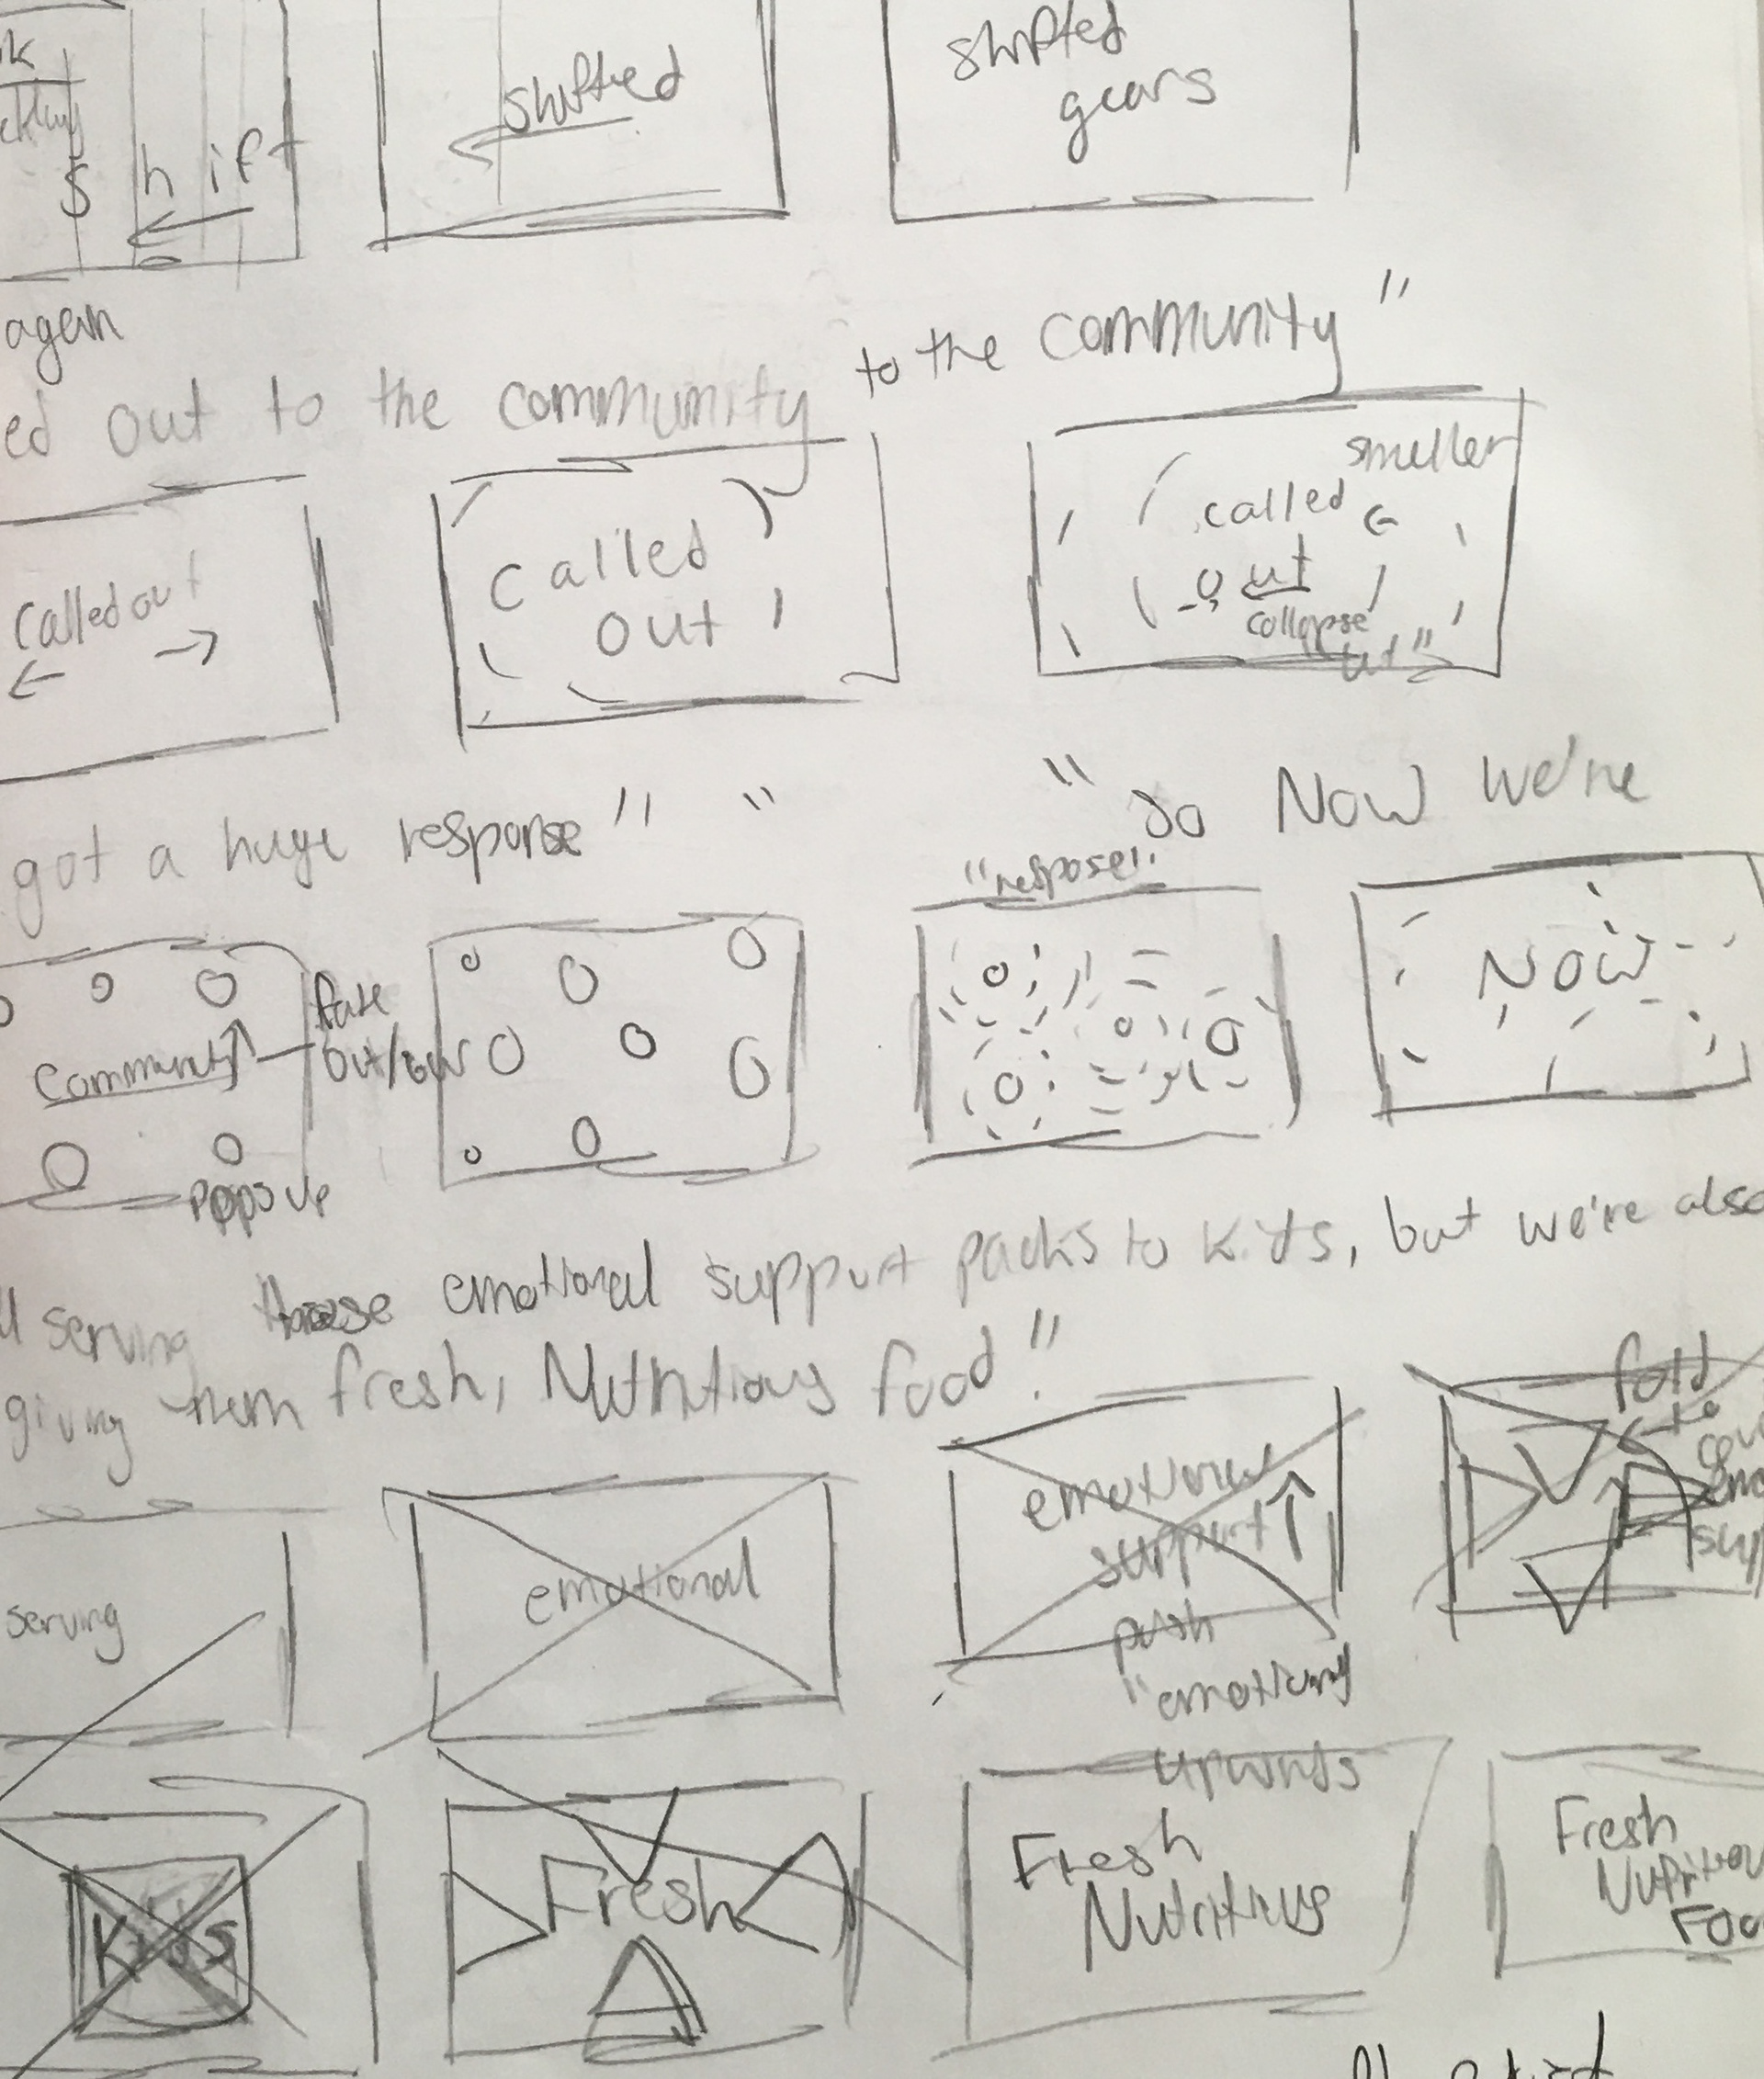 shifted
shifted
gears
s h ift
again
ed out to the community
to the community"
smaller
Called out
Called
out
called
out
collapse
got a huge response" "
"So Now we're
"respose"
Community
fade
out/over
Pops up
Now
serving these emotional support packs to kids, but we're also
giving them fresh, Nutritious food."
serving
emotional
emotional
support
push
"emotional
upwards
fold
to
Kids
Fresh
Fresh
Nutritius
Fresh